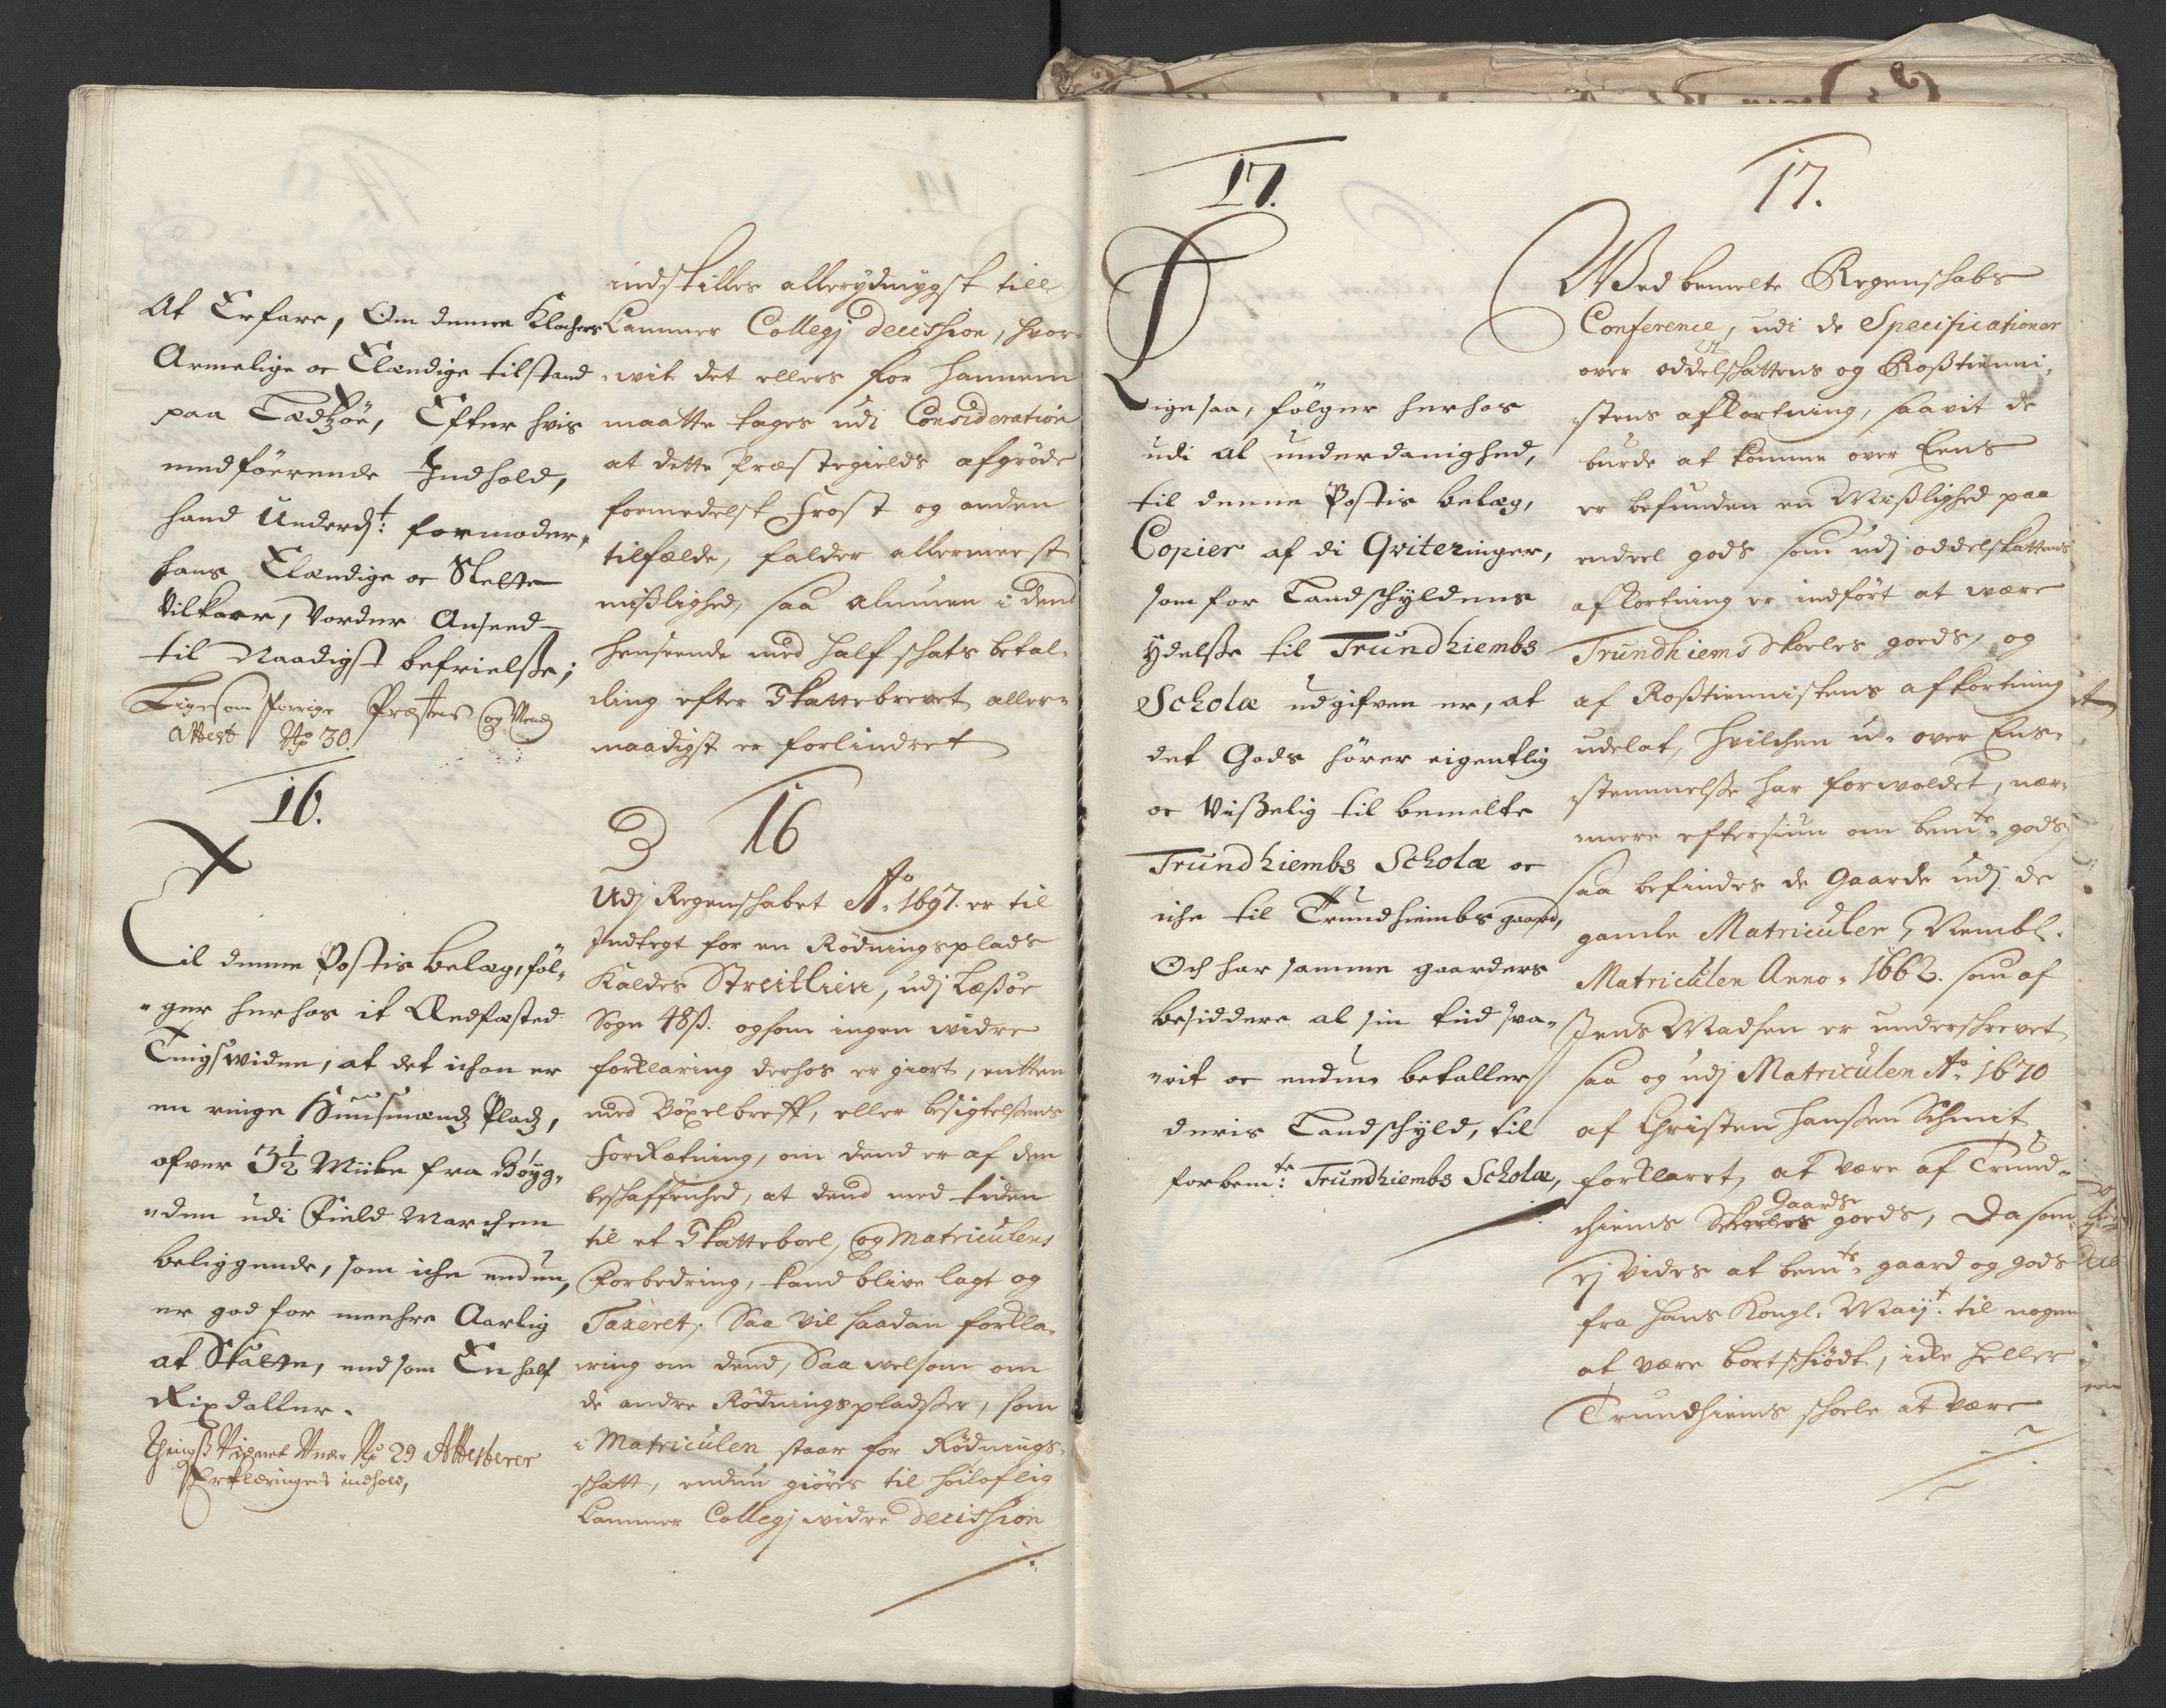 At Erfare, Om denne Klochers
Armelige oc Elændige tilstand
paa Lædtzöe, Efter hvis
medföerende Indhold,
hand Underd:t formoder,
hans Elændige oc Slette
Vilkaar, Vorder Anseed
til Naadigst befrielsse;
Ligesom Præstens og
Attest No 30.
16.
Til denne Postis belæg, föl-
"ger herhos it Eedfæsted
Tingswidne, at det ichon er
en ringe Huusmands Plads,
ofver 3½ Miile fra Böyg-
"den udi Field Marchen
beliggende, som iche endnu,
er god for meehre Aarlig
at Skatte, end som En half
Rixdaller.
No 29 Attesterer
Erklæringens indhold,
indstilles allerydmygst till
Cammer Collegj decission, hvor-
wit det ellers for hannem
maatte tages udi Consideration
at dette Præstegields afgröde
formedelst Frost og anden
tilfælde, falder allermeest
mißlighed, saa almuen i dend
henseende med half schats betal-
ling efter Skattebrevet aller-
naadigst er forlindret
16
Udj Regenschabet Ao 1697. er til
Indtegt for en Rödningsplads
Kaldes Streitlien, udj Læßöe
Sogn 48ß. ogsom ingen widre
forklaring derhos er giort, entten
med Böxelbreff, eller besigtelsens
Forretning, om dend er af den
beschaffenhed, at dend med tiden
til et Skatteboel, og Matriculens
Forbedring, kand blive lagt og
Taxeret; Saa vil saadan forkla-
ring om dend, Saa welsom om
de andre Rödningspladtzer, som
i Matriculen staar for Rödnings-
schatt, endnu giöres til höiloflig
Cammer Collegj widre decission
17.
Ligesaa, fölger herhos
udi al underdanighed,
til denne Postis belæg,
Copier af di Qviteringer,
som for Landschyldens
Ydelsse til Trundhiembs
Scholæ udgifven er, at
det Gods hörer eigentlig
oc Vißelig til bemelte
Trundhiembs Scholæ oc
iche til Trundhiembs gaard,
Och har samme gaarders
besiddere al sin tiid sva-
"rit oc endnu betaller
deris Landschyld, til
forbem:te Trundhiembs Scholæ,
17.
Wed bemelte Regenschabs
Conference, udi de Specificationer
over oddelschattens og Roßtienni-
stens afkortning, saavit de
burde at komme over Eens
er befunden en Mißlighed paa
endeel gods som udj oddelskattens
afkortning er indfört at være
Trundhiems Skoeles goeds, og
af Roßtiennistens afkortning
udelat, hvilchen u- over Ens-
stemmelsse har forvoldet, nær-
mere eftersiun om bemte gods,
saa befindes de Gaarde udj de
gamle Matriculer, Nembl.
Matriculen Anno 1662. som af
Jens Madsen er underschrevet
saa og udj Matriculen Ao 1670
af Christen Hanßen Schmit
forklaret, at være af Trund-
hiems Skoeles Gaards goeds, Dasom
ej vides at bemte gaard og gods
fra Hans Kongl. Maijt. til nogen
at være bortschiödt, icke heller
Trundhiems schoele at være